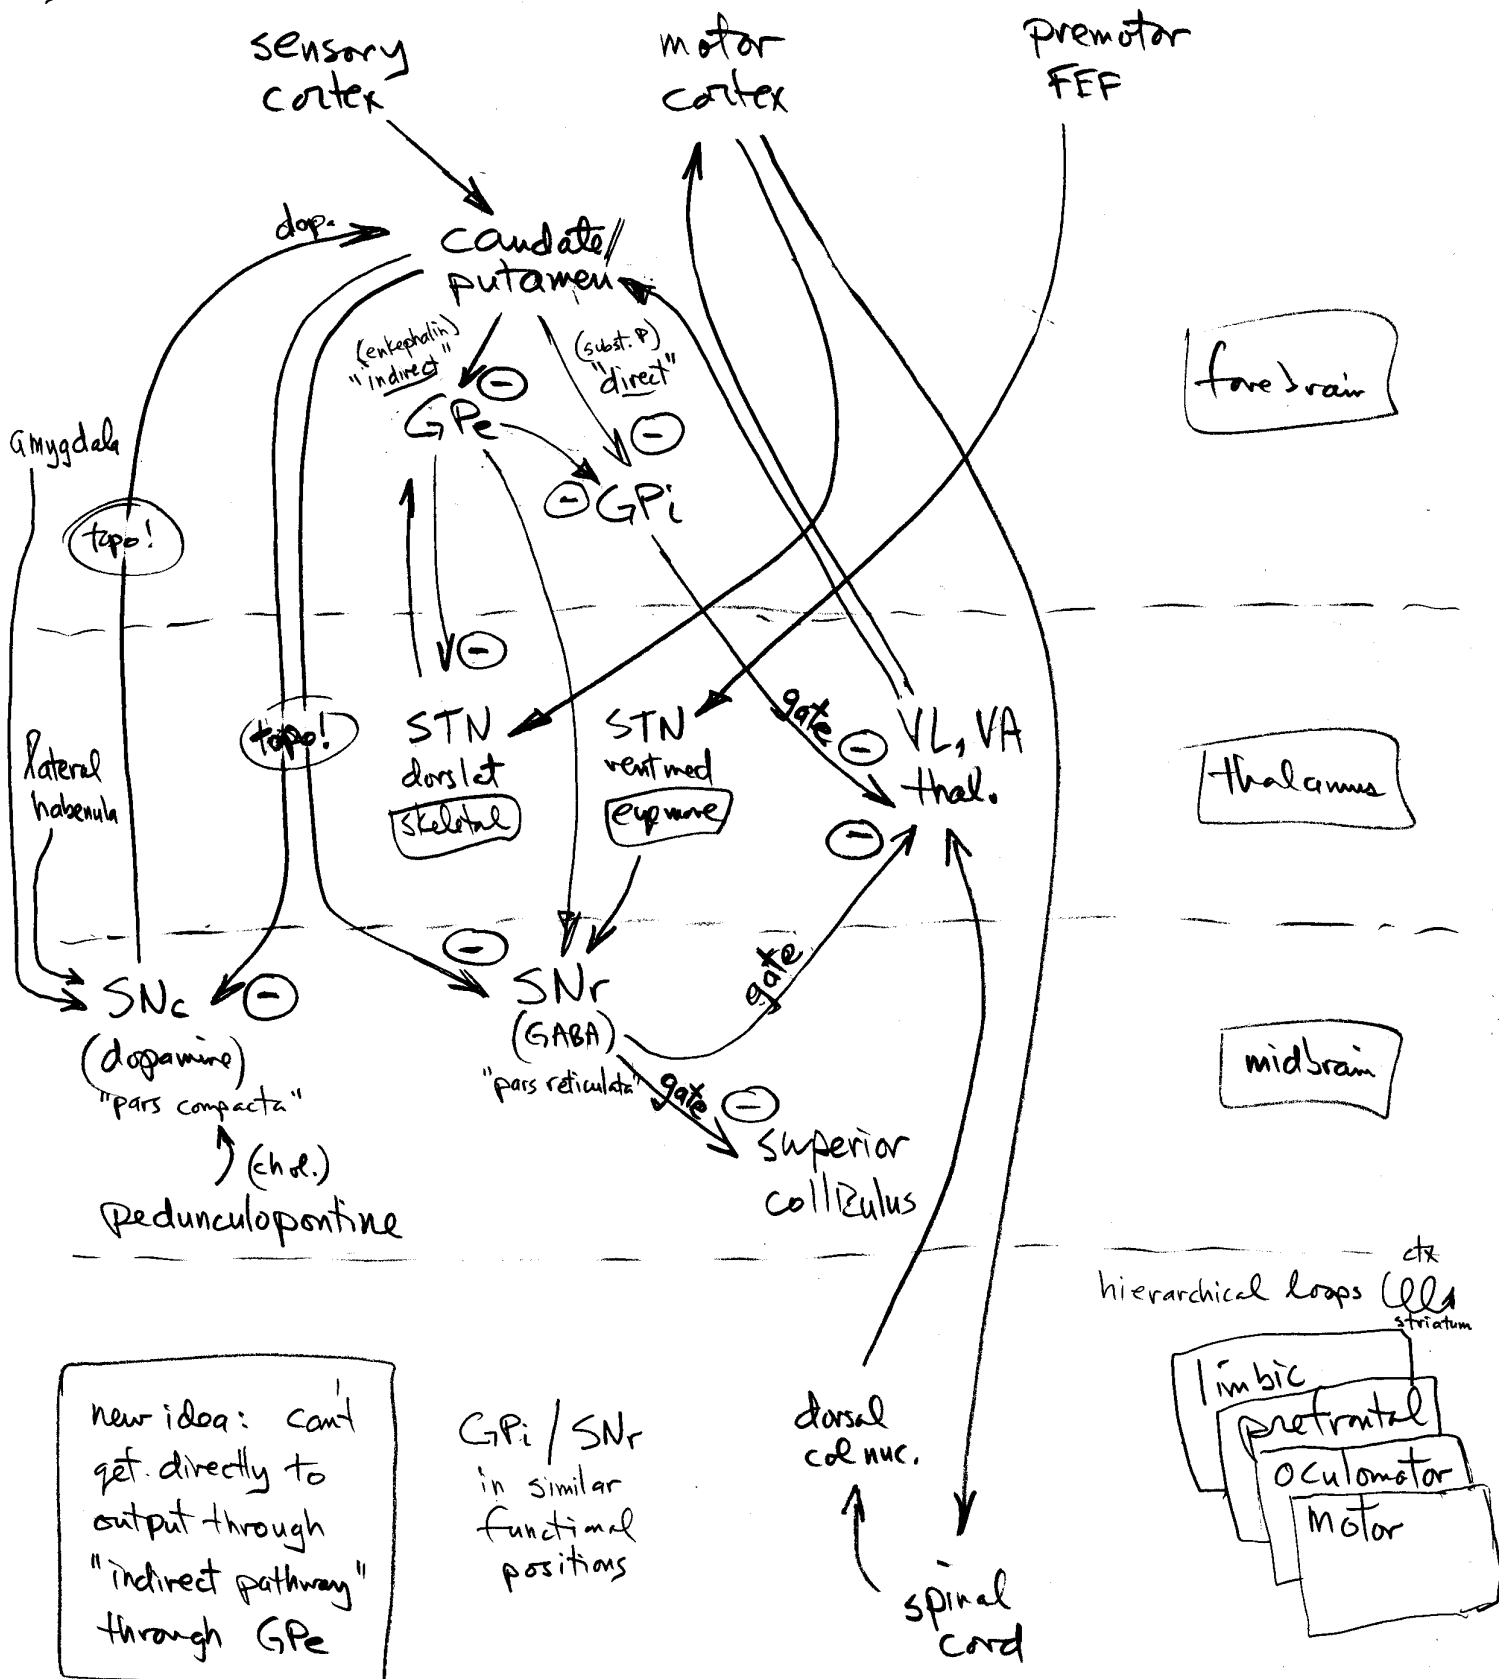 sensory
cortex
motor
cortex
premotor
FEF
dop.
caudate/
putamen
(enkephalin)
"indirect"
(subst. P)
"direct"
forebrain
amygdala
GPe
GPi
topo!
topo!
gate
STN
dorslat
skeletal
STN
ventmed
eyemove
VL, VA
thal.
thalamus
lateral
habenula
SNc
(dopamine)
"pars compacta"
SNr
(GABA)
"pars reticulata"
gate
gate
midbrain
superior
colliculus
(chol.)
pedunculopontine
hierarchical loops
ctx
striatum
limbic
prefrontal
oculomotor
motor
new idea: can't
get directly to
output through
"indirect pathway"
through GPe
GPi / SNr
in similar
functional
positions
dorsal
col nuc.
spinal
cord